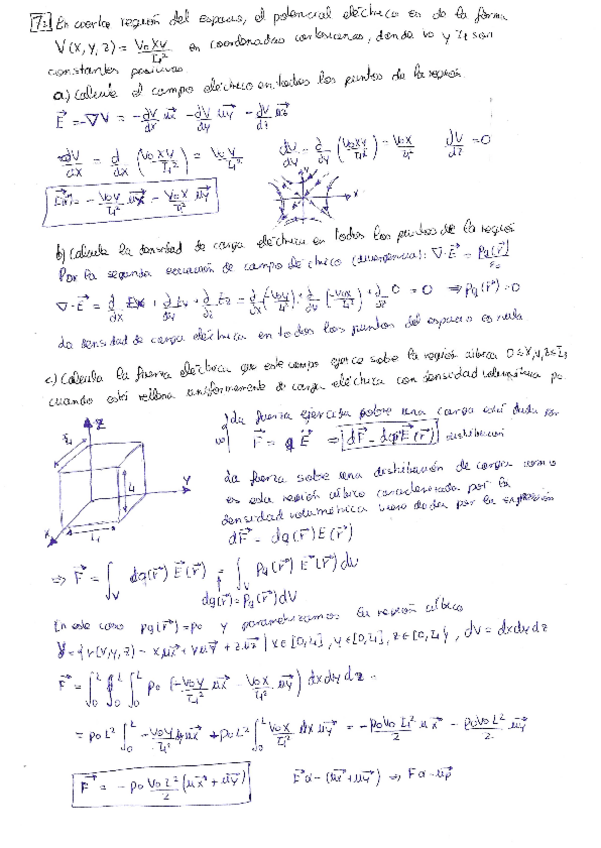 7. En cierta región del espacio, el potencial eléctrico es de la forma
V(x,y,z) = V₀xy/L² en coordenadas cartesianas, donde V₀ y L son
constantes positivas
a) Calcule el campo eléctrico en todos los puntos de la región
E⃗ = -∇V = -dV/dx u⃗x - dV/dy u⃗y - dV/dz u⃗z
dV/dx = d/dx (V₀xy/L²) = V₀y/L² dV/dy = d/dy (V₀xy/L²) = V₀x/L² dV/dz = 0
E(r⃗) = -V₀y/L² u⃗x - V₀x/L² u⃗y
Y
X
b) Calcula la densidad de carga eléctrica en todos los puntos de la región
Por la segunda ecuación de campo eléctrico (divergencia): ∇·E⃗ = ρq(r⃗)/ε₀
∇·E⃗ = d/dx Ex + d/dy Ey + d/dz Ez = d/dx (-V₀y/L²) + d/dy (-V₀x/L²) + d/dz 0 = 0 ⇒ ρq(r⃗) = 0
La densidad de carga eléctrica en todos los puntos del espacio es nula
c) Calcula la fuerza eléctrica que este campo ejerce sobre la región cúbica 0≤x,y,z≤L,
cuando está rellena uniformemente de carga eléctrica con densidad volumétrica ρ₀
La fuerza ejercida sobre una carga está dada por
F⃗ = q E⃗ ⇒ dF⃗ = dq E⃗(r⃗) distribución
Z
Y
X
L
L
L
La fuerza sobre una distribución de carga como
es esta región cúbica caracterizada por la
densidad volumétrica viene dada por la expresión
dF⃗ = dq(r⃗) E(r⃗)
⇒ F⃗ = ∫V dq(r⃗) E⃗(r⃗) = ∫V ρq(r⃗) E⃗(r⃗) dV
dq(r⃗) = ρq(r⃗) dV
En este caso ρq(r⃗) = ρ₀ y parametrizamos la región cúbica
V = {r(x,y,z) = x u⃗x + y u⃗y + z u⃗z | x∈[0,L], y∈[0,L], z∈[0,L]}, dV = dxdydz
F⃗ = ∫₀ᴸ ∫₀ᴸ ∫₀ᴸ ρ₀ (-V₀y/L² u⃗x - V₀x/L² u⃗y) dxdydz =
= ρ₀L² ∫₀ᴸ -V₀y/L² dy u⃗x + ρ₀L² ∫₀ᴸ V₀x/L² dx u⃗y = -ρ₀V₀L²/2 u⃗x - ρ₀V₀L²/2 u⃗y
F⃗ = -ρ₀V₀L²/2 (u⃗x + u⃗y) F⃗ α -(u⃗x + u⃗y) ⇒ F α -u⃗ρ